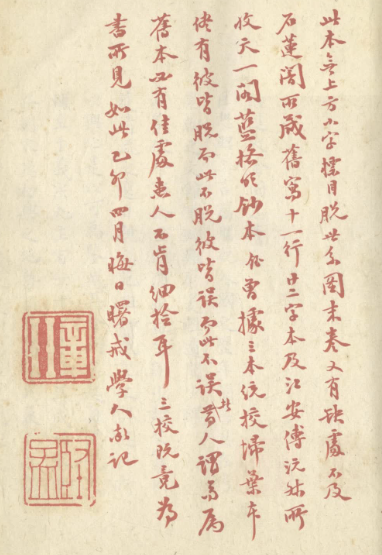 此本無上方小字標目脫世系圖末卷又有缺處不及
石蓮闇所藏舊寫十一行廿二字本及江安傅沅叔所
收天一閣藍格鈔本曾據三本统校掃葉本
儘有彼皆脫而此不脫彼皆誤而此不誤者人謂
舊本必有佳處患人不肯細撿耳三校既竟為
書所見如此乙卯四月晦日曙戒學人記
堅孟